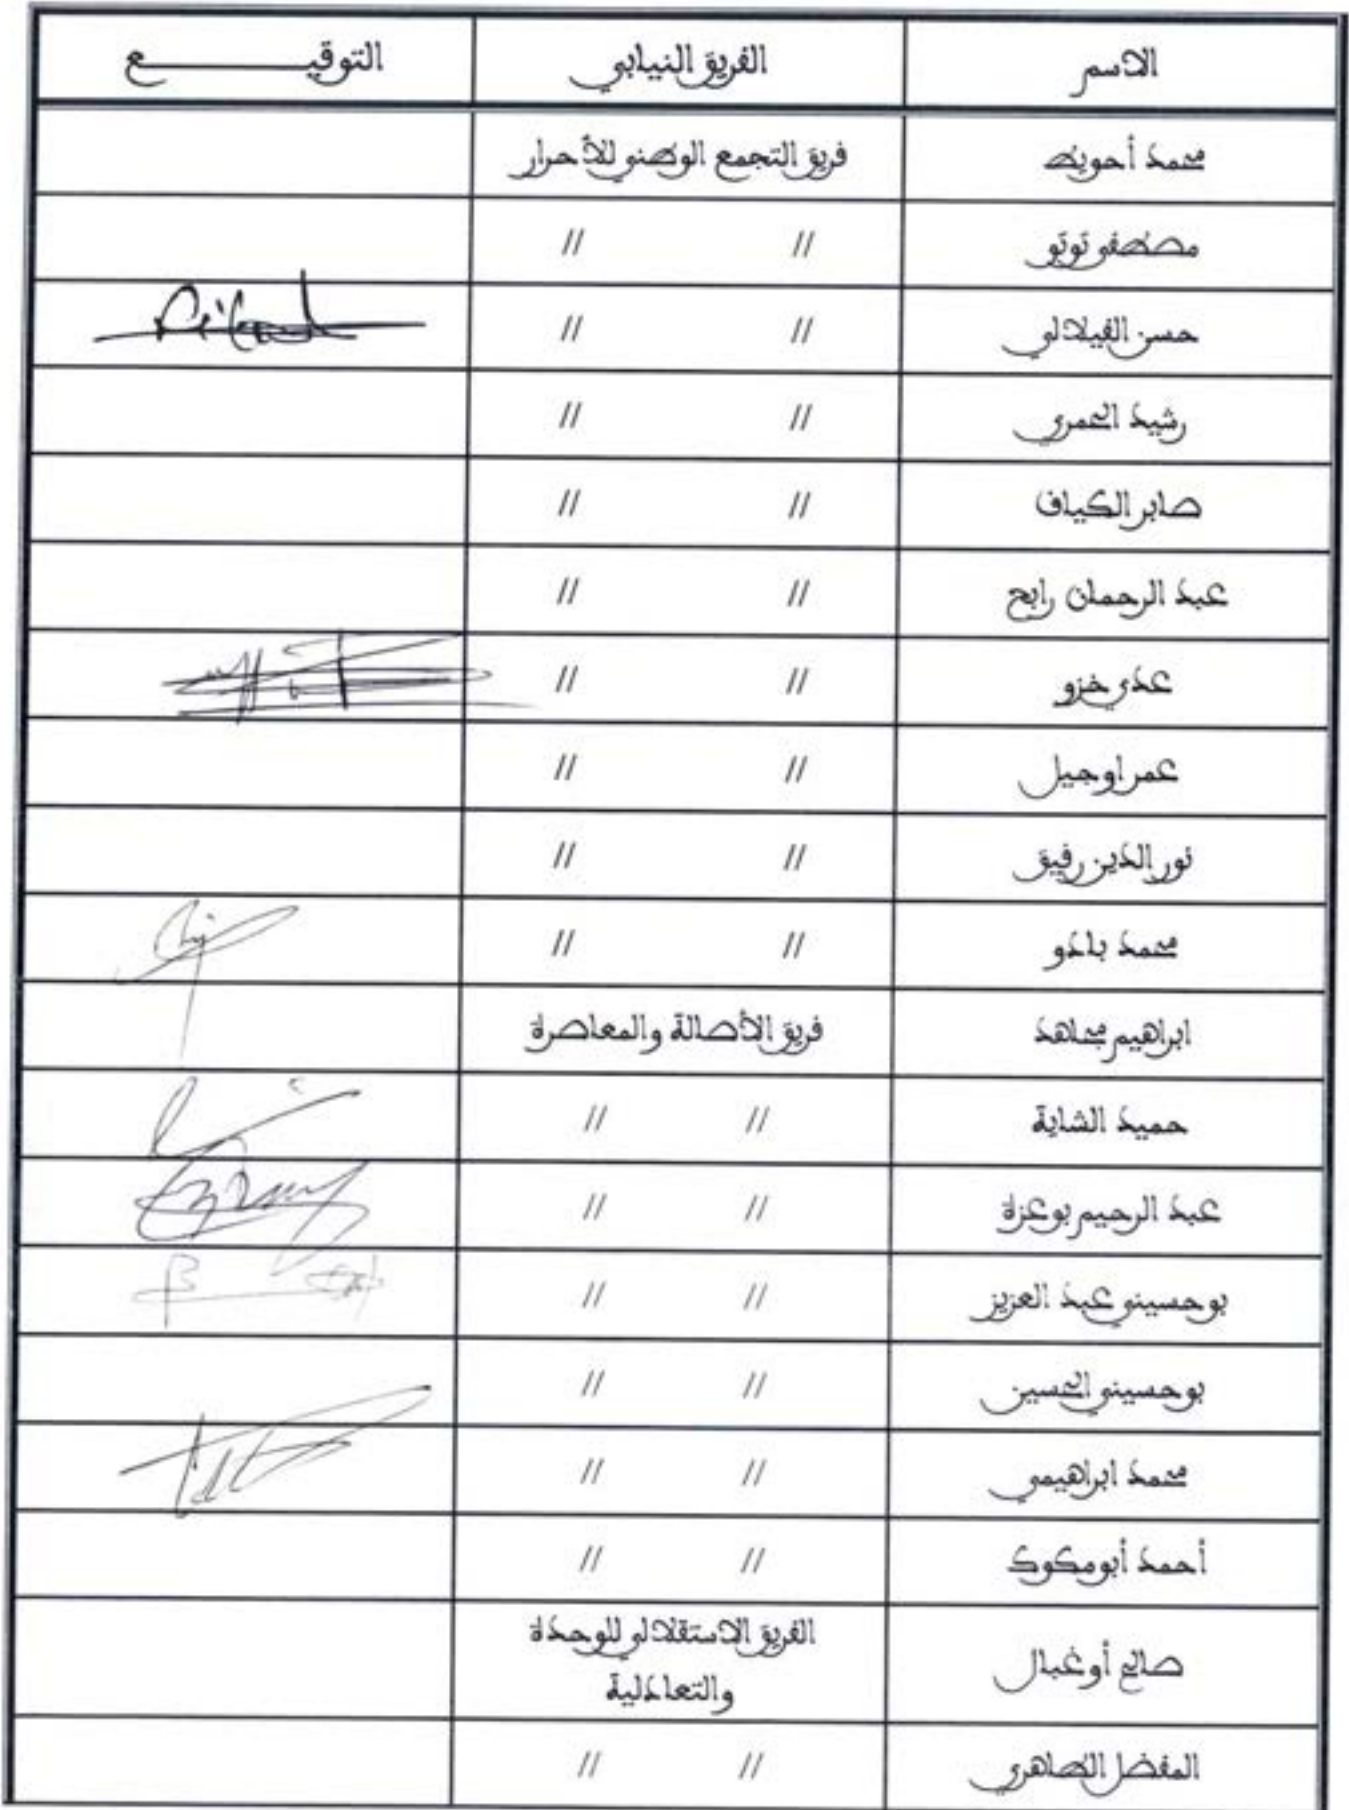 الاسم الفريق النيابي التوقيـــــــــع
محمد أحويط فريق التجمع الوطني للأحرار
مصطفى توتو // //
حسن الفيلالي // //
رشيد الحمري // //
صابر الكياف // //
عبد الرحمان رابح // //
عدي خزو // //
عمر اوجيل // //
نور الدين رفيق // //
محمد بادو // //
ابراهيم مجاهد فريق الأصالة والمعاصرة
حميد الشاية // //
عبد الرحيم بوعزة // //
بوحسيني عبد العزيز // //
بوحسيني الحسين // //
محمد ابراهيمي // //
أحمد أبومكوك // //
صالح أوغبال الفريق الاستقلالي للوحدة
والتعادلية
المفضل الطاهري // //